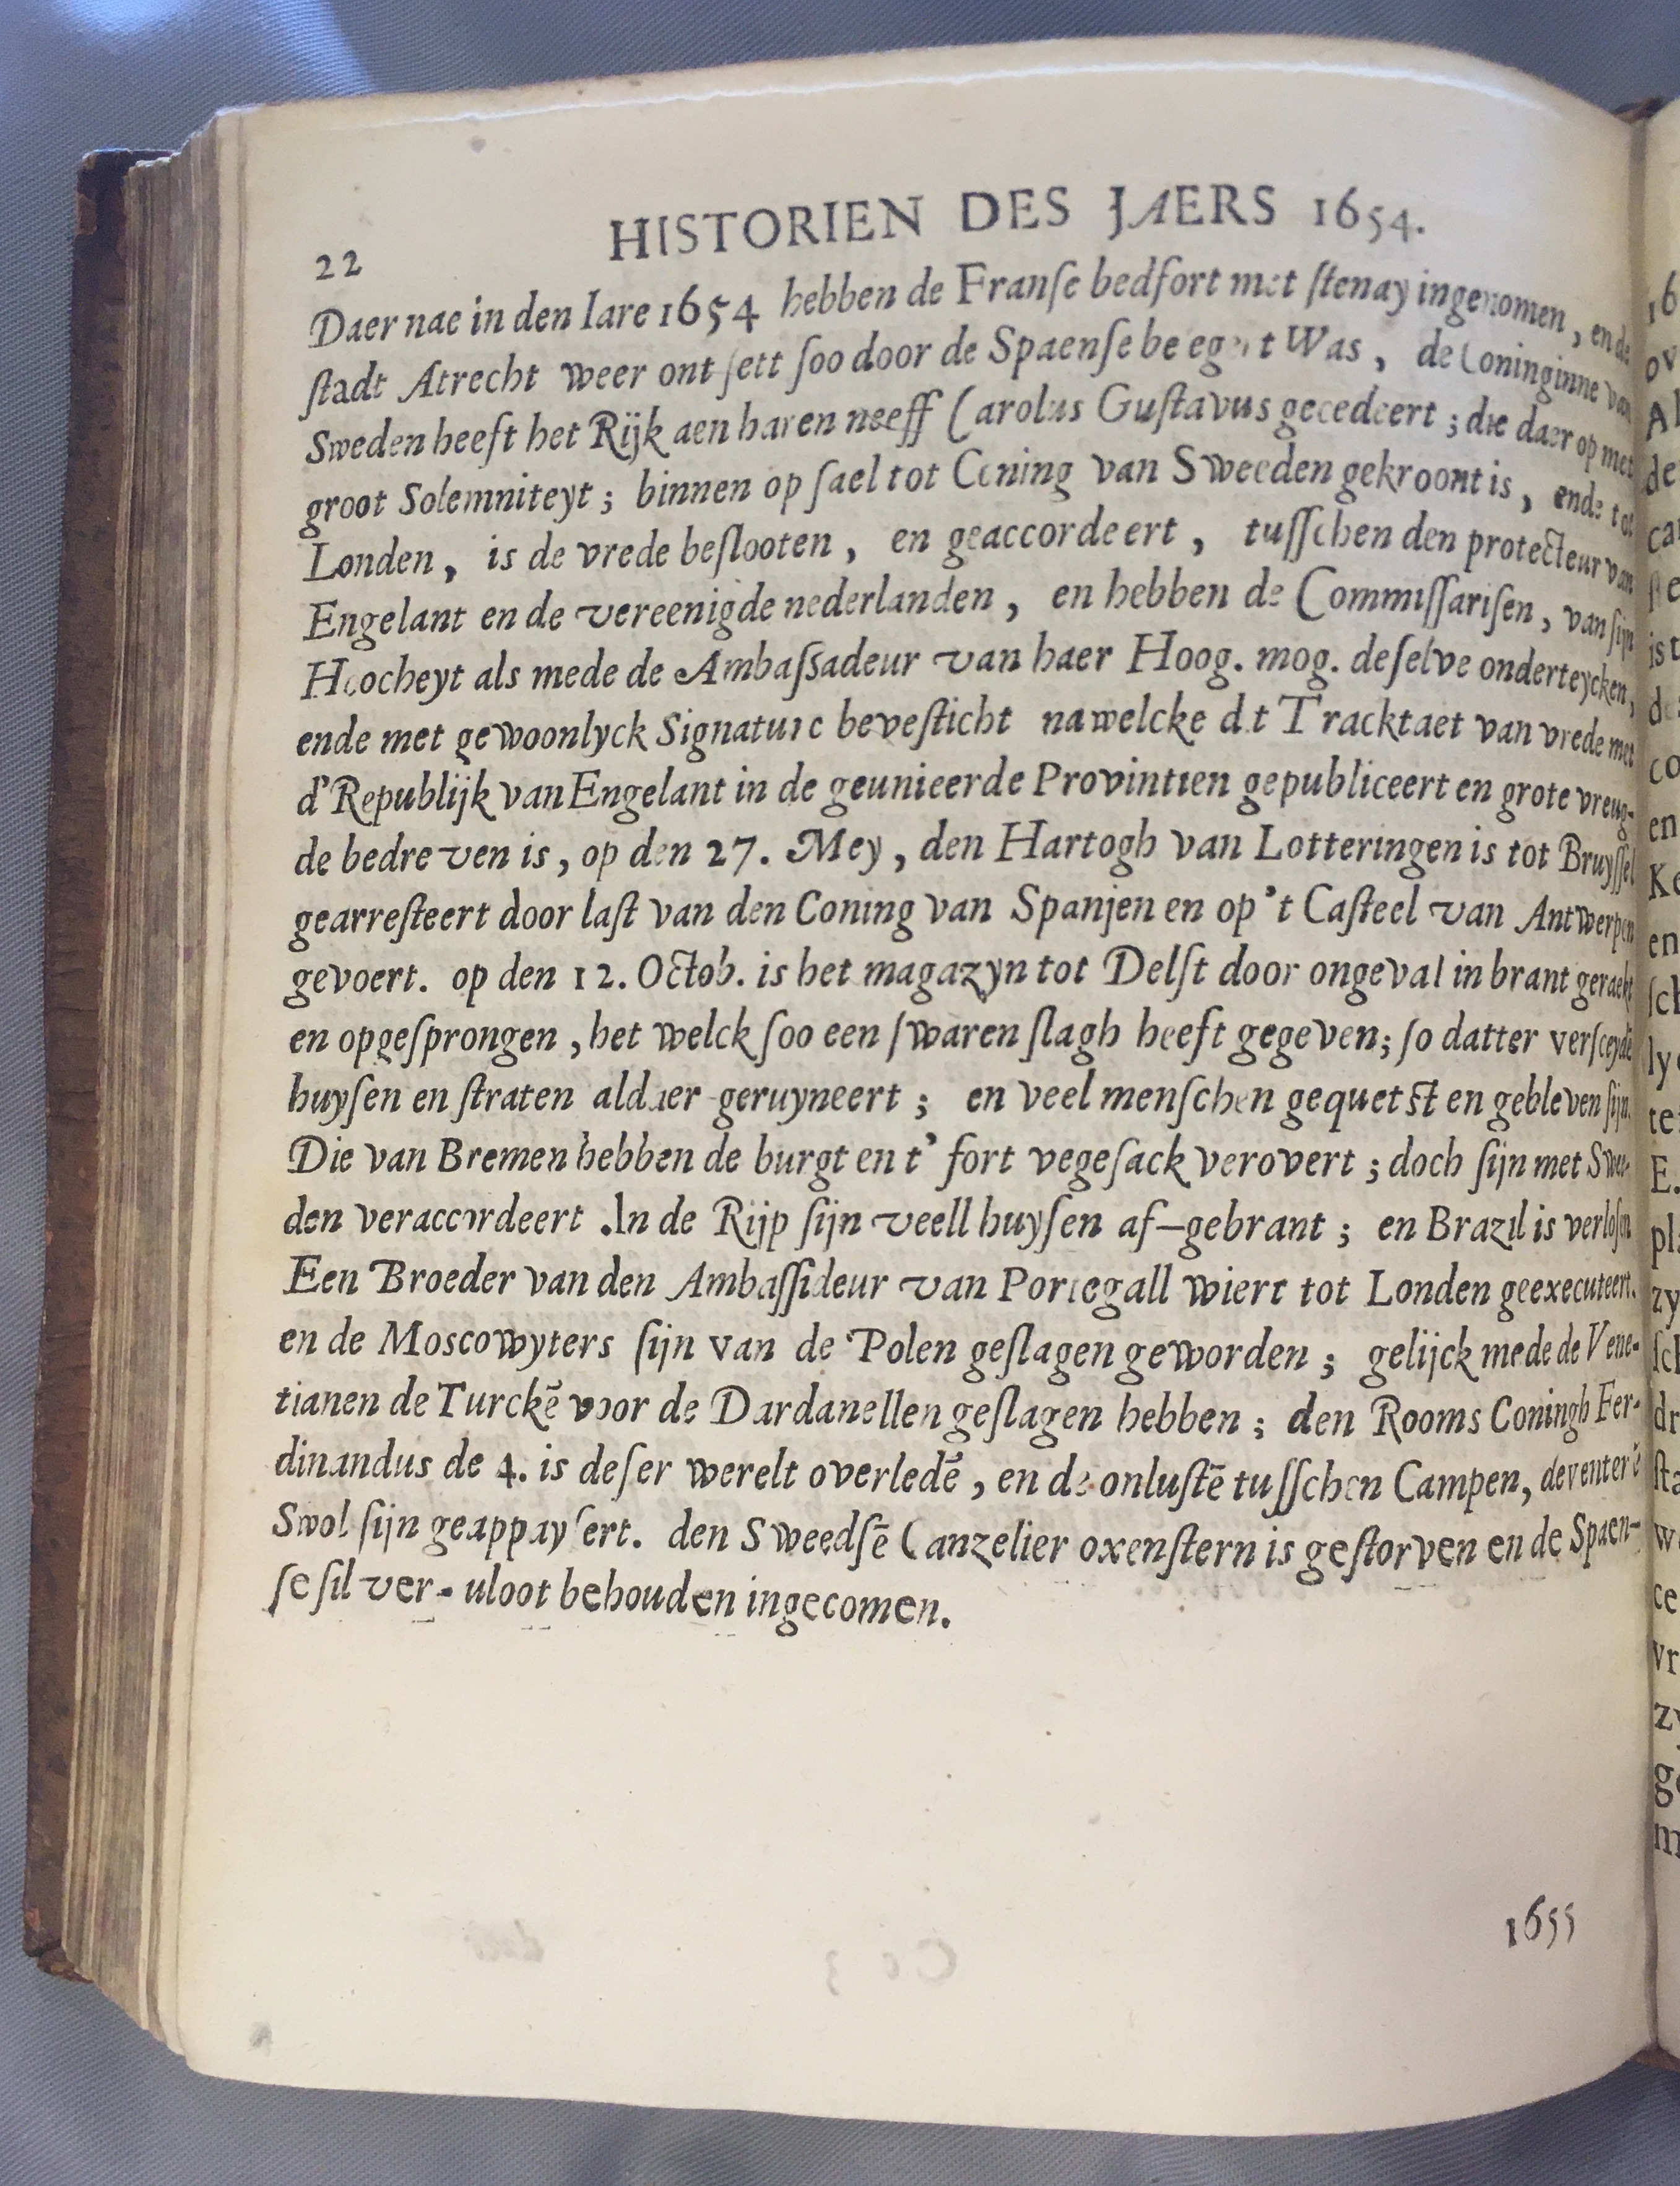 HISTORIEN DES JAERS 1654.
22
Daer nae in den Iare 1654 hebben de Franſe bedfort met ſtenay ingenomen, ende
ſtadt Atrecht weer ont ſett ſoo door de Spaenſe be eg t Was, de Coninginne van
Sweden heeft het Rijk aen haren neeff Carolus Guſtavus gecedeert; die daer op met
groot Solemniteyt; binnen op ſael tot Coning van Sweeden gekroont is, ende tot
Londen, is de vrede beſlooten, en geaccordeert, tuſſchen den protecteur van
Engelant en de vereenigde nederlanden, en hebben de Commiſſariſen, van ſijn
Hoocheyt als mede de Ambaſsadeur van haer Hoog. mog. deſelve onderteycken,
ende met gewoonlyck Signature beveſticht na welcke dit Tracktaet van vrede met
d'Republijk van Engelant in de geunieerde Provintien gepubliceert en grote vreug-
de bedreven is, op den 27. Mey, den Hartogh van Lotteringen is tot Bruyſſel
gearreſteert door laſt van den Coning van Spanjen en op't Caſteel van Antwerpen
gevoert. op den 12. Octob. is het magazyn tot Delft door ongeval in brant geraekt
en opgeſprongen, het welck ſoo een ſwaren ſlagh heeft gegeven; ſo datter verſceyde
huyſen en ſtraten aldaer geruyneert; en veel menſchen gequetſt en gebleven ſijn.
Die van Bremen hebben de burgt en t' fort vegeſack verovert; doch ſijn met Swe-
den veraccordeert .In de Rijp ſijn veell huyſen af-gebrant; en Brazil is verloſen
Een Broeder van den Ambaſſideur van Portegall wiert tot Londen geexecuteert.
en de Moscowyters ſijn van de Polen geſlagen geworden; gelijck mede de Vene-
tianen de Turckē voor de Dardanellen geſlagen hebben; den Rooms Coningh Fer-
dinandus de 4. is deſer werelt overledē, en de onluſtē tuſſchen Campen, deventer ē
Swol ſijn geappayſert. den Sweedſē Canzelier oxenſtern is geſtorven en de Spaen-
ſe ſilver-uloot behouden ingecomen.
1655